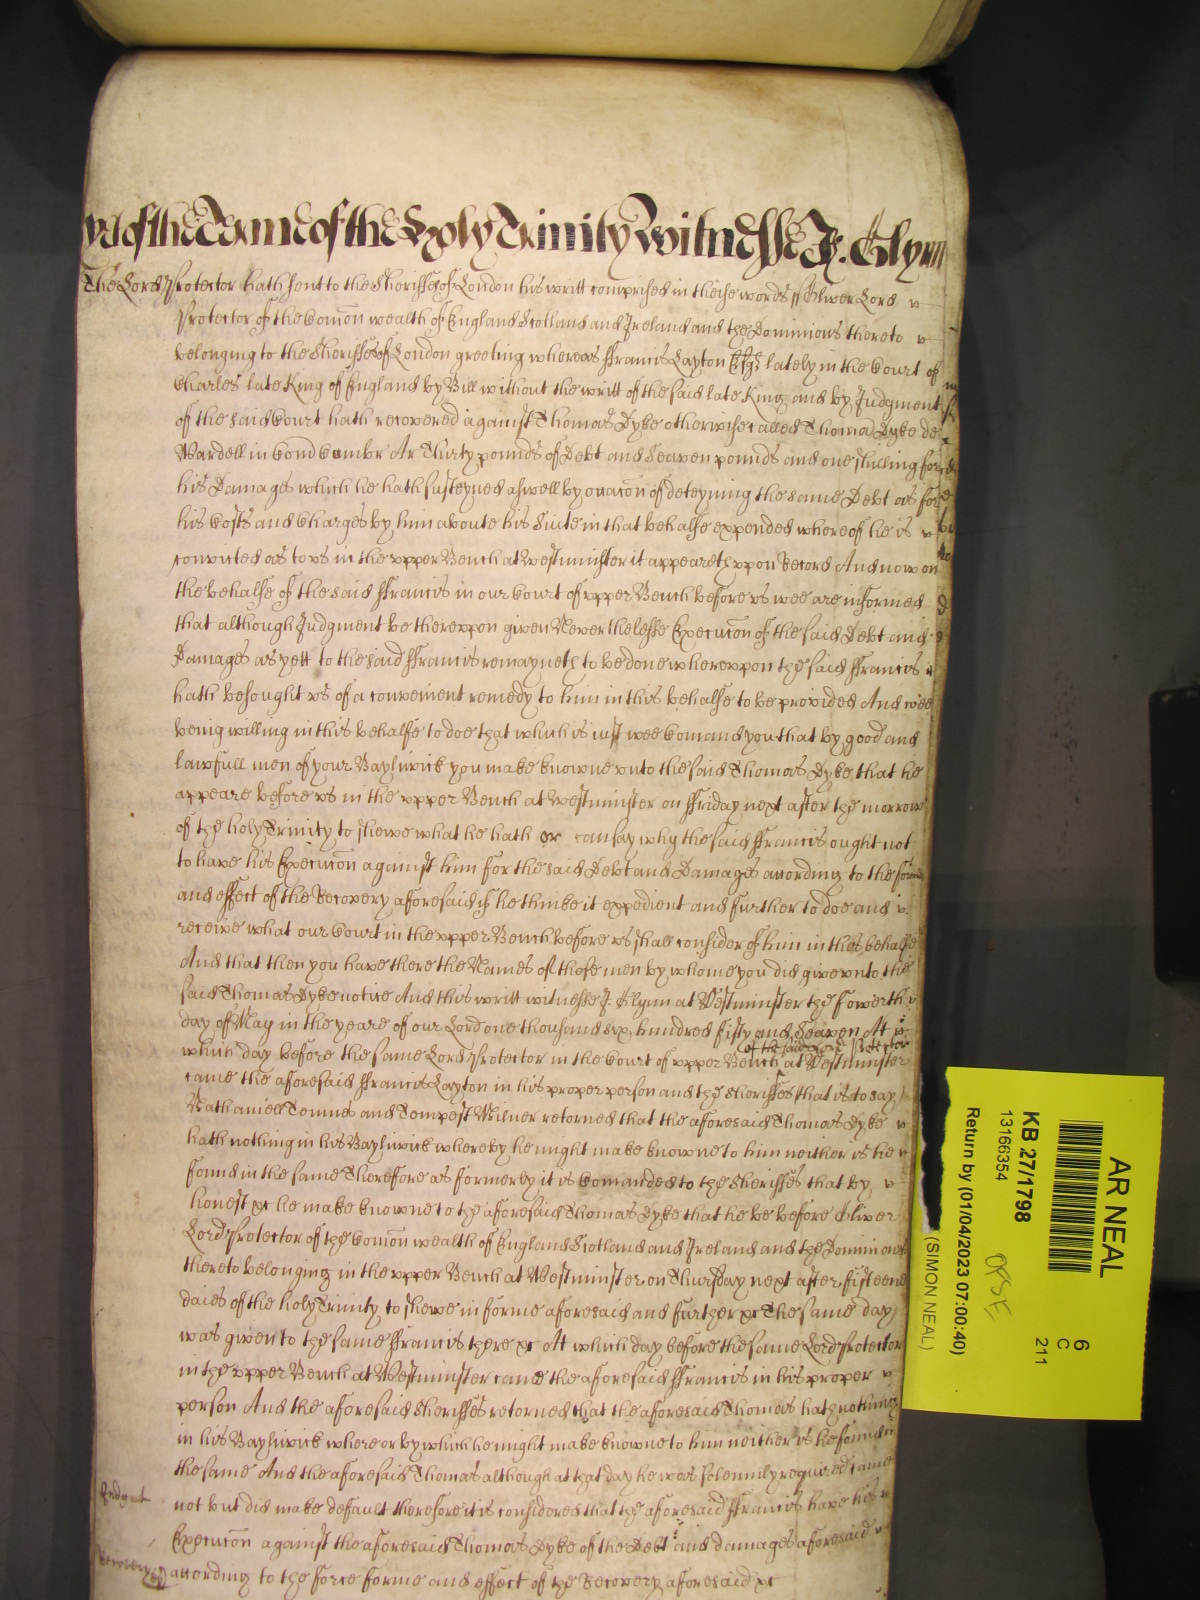 yet of the Terme of the Holy Trinity Witnesse J. Glynn
The Lord Protector hath sent to the Sheriffes of London his writt comprised in theise words ss Oliver Lord
Protector of the Comon wealth of England Scotland and Ireland and the Dominions thereto
belonging to the Sheriffes of London greeting whereas Ffrancis Layton Esqr lately in the Court of
Charles late King of England by Bill without the writt of the said late King and by Judgment
of the said Court hath recovered against Thomas Dyke otherwise called Thomas Dyke de
Wardell in Thirty pounds of Debt and Seaven pounds and one shilling for
his Damages which he hath susteyned aswell by occacon of deteyning the same Debt as for
his Costs and Charges by him aboute his Suite in that behalfe expended whereof he is
convicted as to us in the upper Bench at Westminster it appeareth upon Record And now on
the behalfe of the said Ffrancis in our Court of upper Bench before us wee are informed
that although Judgment be thereupon given Neverthelesse Execucon of the said Debt and
Damages as yett to the said Ffrancis remayneth to be done whereupon the said Ffrancis
hath besought us of a convenient remedy to him in this behalfe to be provided And wee
being willing in this behalfe to doe that which is just wee Comand you that by good and
lawfull men of your Bayliwick you make knowne unto the said Thomas Dyke that he
appeare before us in the upper Bench at Westminster on Ffriday next after the morrow
of the holy Trinity to shewe what he hath or can say why the said Ffrancis ought not
to have his Execucon against him for the said Debt and Damages according to the forme
and effect of the Recovery aforesaid if he thinke it expedient and further to doe and
receive what our Court in the upper Bench before us shall consider of him in this behalfe
And that then you have there the Names of those men by whome you did give unto the
said Thomas Dyke notice And this writt witnesse J. Glynn at Westminster the Fowerth
day of May in the yeare of our Lord one thousand six hundred fifty and Seaven At
of the said Lord Protector
which day before the same Lord Protector in the Court of upper Bench at Westminster
came the aforesaid Ffrancis Layton in his proper person and the Sheriffes that is to say
Nathaniell Temmes and Tempest Milner returned that the aforesaid Thomas Dyke
hath nothing in his Bayliwick whereby he might make knowne to him neither is he
found in the same Therefore as formerly it is Comanded to the Sheriffes that by
honest xc he make knowne to the aforesaid Thomas Dyke that he be before Oliver
Lord Protector of the Comon wealth of England Scotland and Ireland and the Dominions
thereto belonging in the upper Bench at Westminster on Thursday next after fifteene
daies of the holy Trinity to shewe in forme aforesaid and further xc The same day
was given to the same Ffrancis there xc At which day before the same Lord Protector
in the upper Bench at Westminster came the aforesaid Ffrancis in his proper
person And the aforesaid Sheriffes returned that the aforesaid Thomas hath nothing
in his Bayliwick where or by which he might make knowne to him neither is he found in
the same And the aforesaid Thomas although at that day he was solemnly required came
Judgmt
not but did make default therefore it is considered that the aforesaid Ffrancis have his
Execucon against the aforesaid Thomas Dyke of the Debt and damages aforesaid
Recovery
according to the force forme and effect of the Recovery aforesaid xc
AR NEAL
KB 27/1798
13166354
Return by (01/04/2023 07:00:40)
(SIMON NEAL)
6
C
211